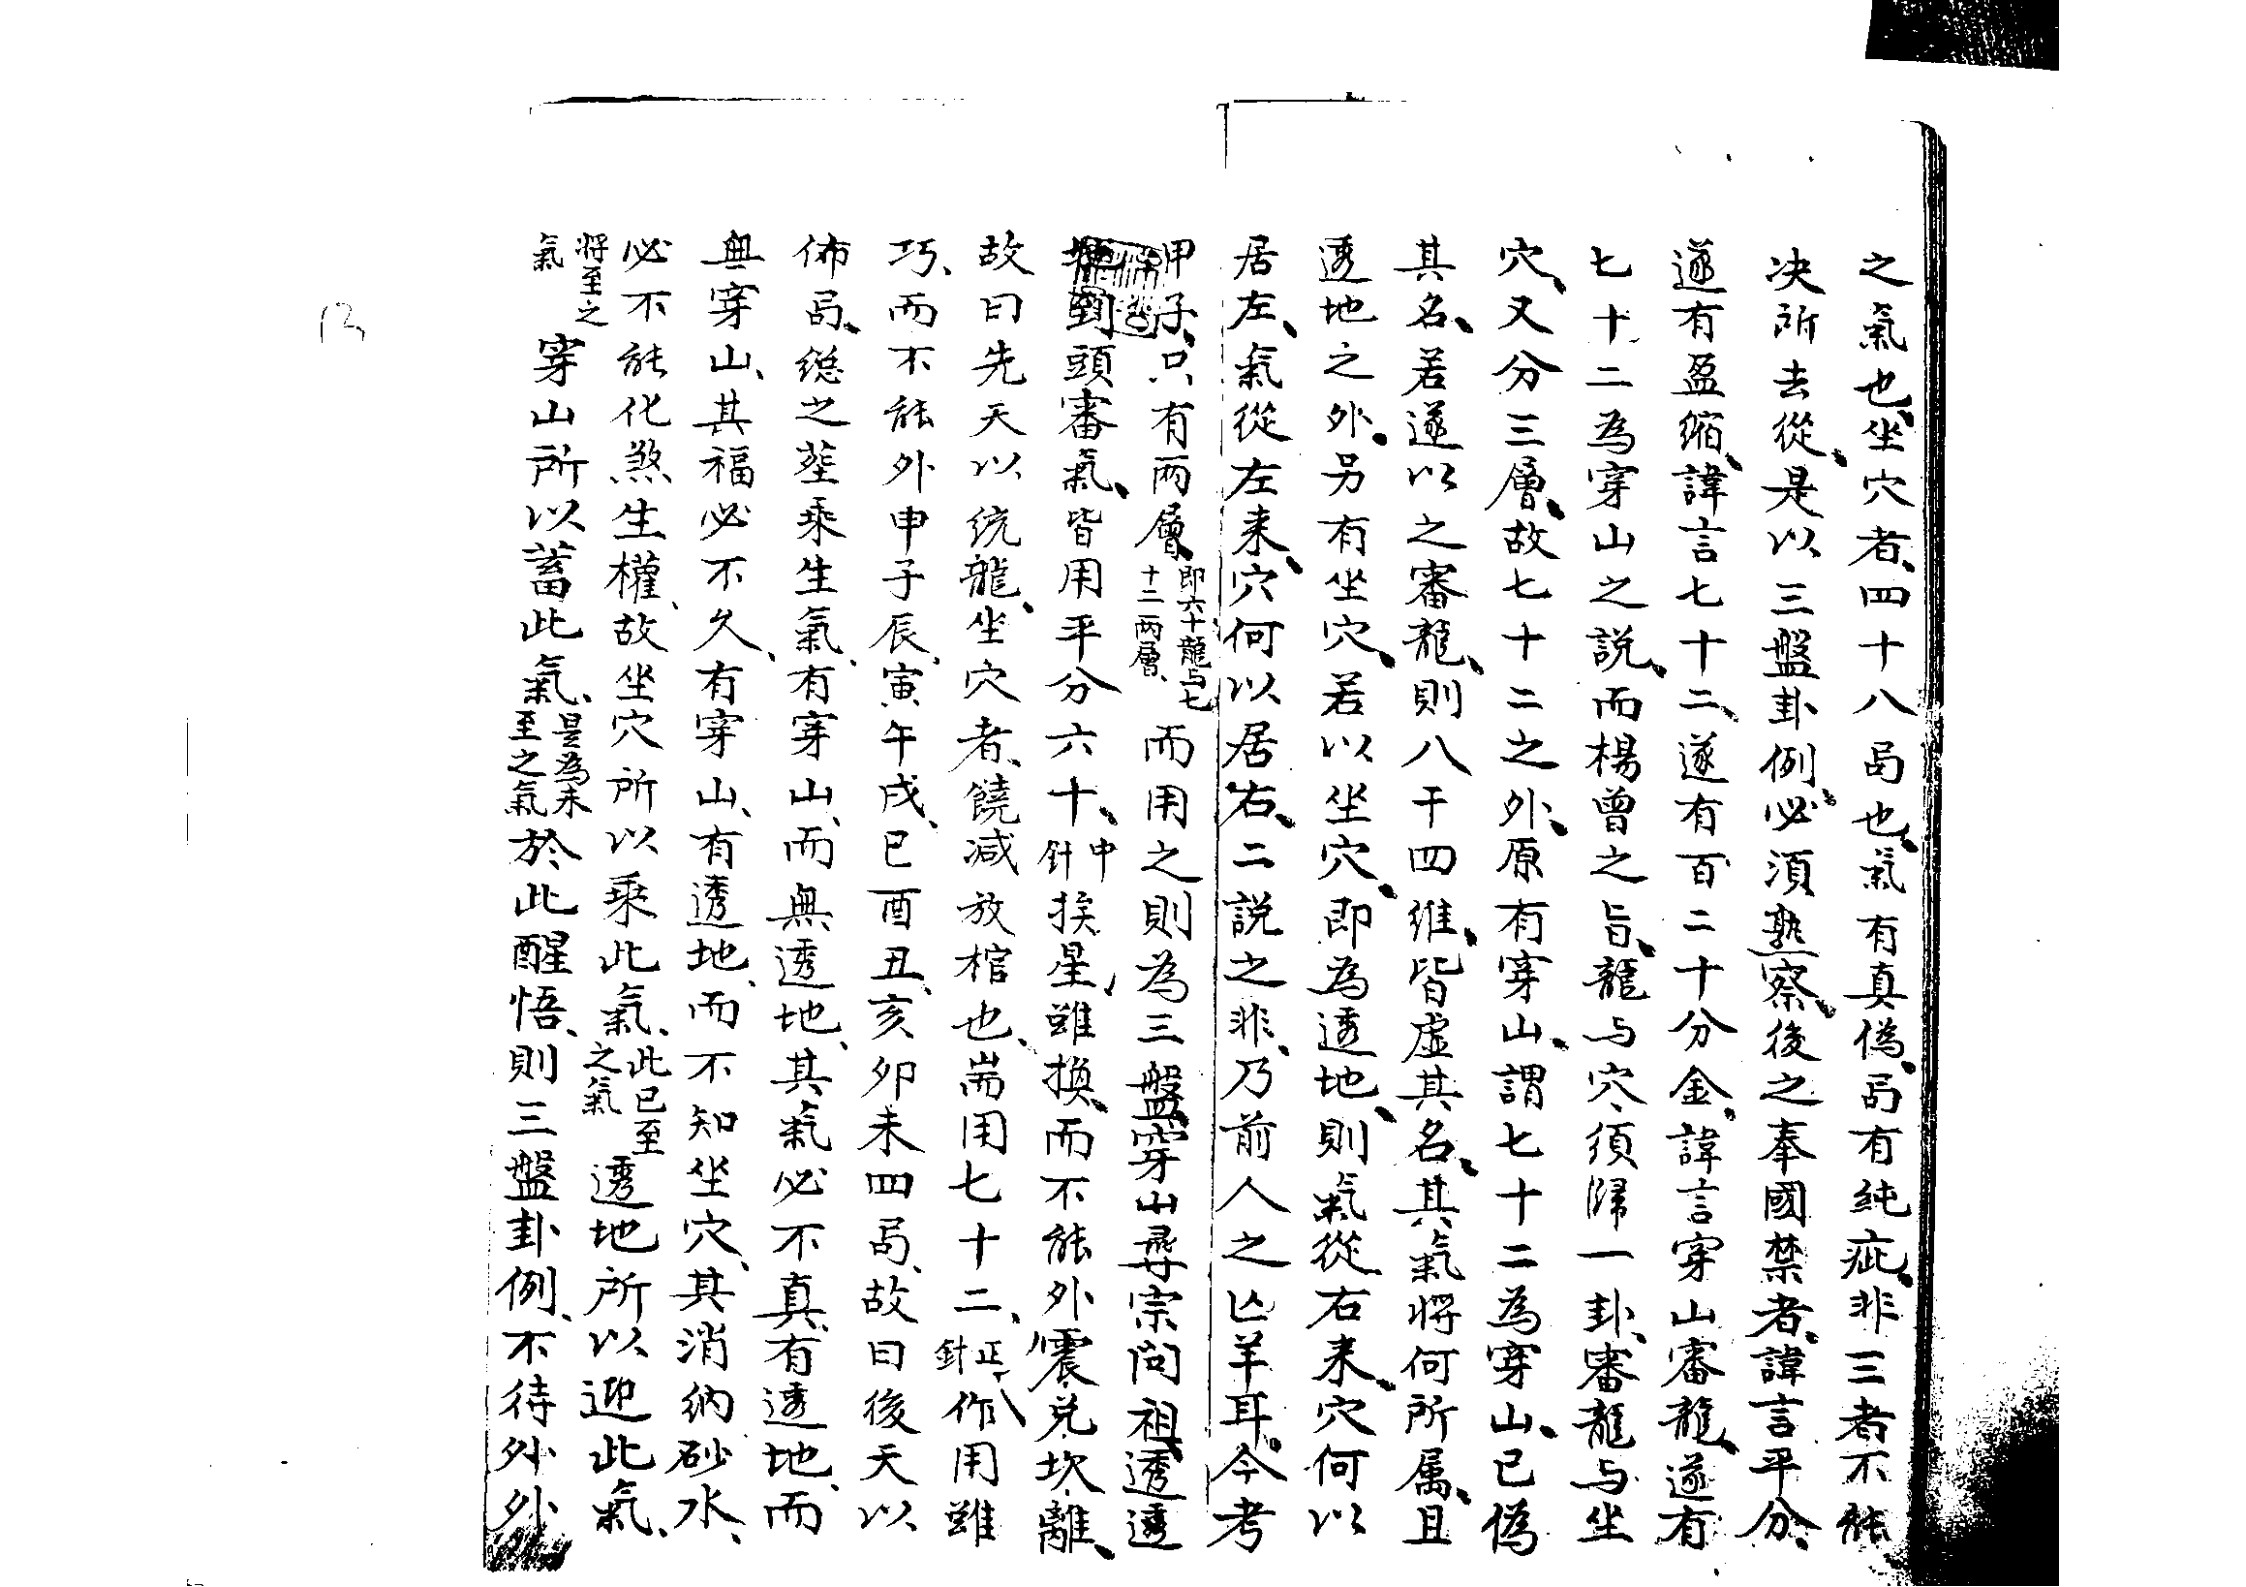 之氣也、坐穴者、四十八局也、氣有真偽、局有純疵、非三者不能
决所去從、是以三盤卦例、必須熟察、後之奉國禁者、諱言平分、
遂有盈缩、諱言七十二、遂有百二十分金、諱言穿山審龍、遂有
七十二為穿山之説、而楊曾之旨、龍与穴、須歸一卦、審龍与坐
穴、又分三層、故七十二之外、原有穿山、謂七十二為穿山、已偽
其名、若遂以之審龍、則八干四維、皆虚其名、其氣將何所属、且
透地之外、另有坐穴、若以坐穴、即為透地、則氣從右来、穴何以
居左、氣從左来、穴何以居右、二説之非、乃前人之亾羊耳、今考
甲子、只有两層、即六十龍与七十二两層、而用之則為三盤、穿山尋宗问祖、透透
地到頭審氣、皆用平分六十、中針挨星、雖换、而不能外震兑坎離、
故曰先天以统龍、坐穴者、饒减放棺也、耑用七十二、正針作用雖
巧、而不能外申子辰、寅午戌、巳酉丑、亥卯未四局、故曰後天以
佈局、総之塟乘生氣、有穿山、而無透地、其氣必不真、有透地、而
無穿山、其福必不久、有穿山、有透地、而不知坐穴、其消纳砂水、
必不能化煞生權、故坐穴所以乘此氣、此已至之氣透地所以迎此氣、
將至之氣穿山所以蓄此氣、是為未至之氣於此醒悟、則三盤卦例、不待外外